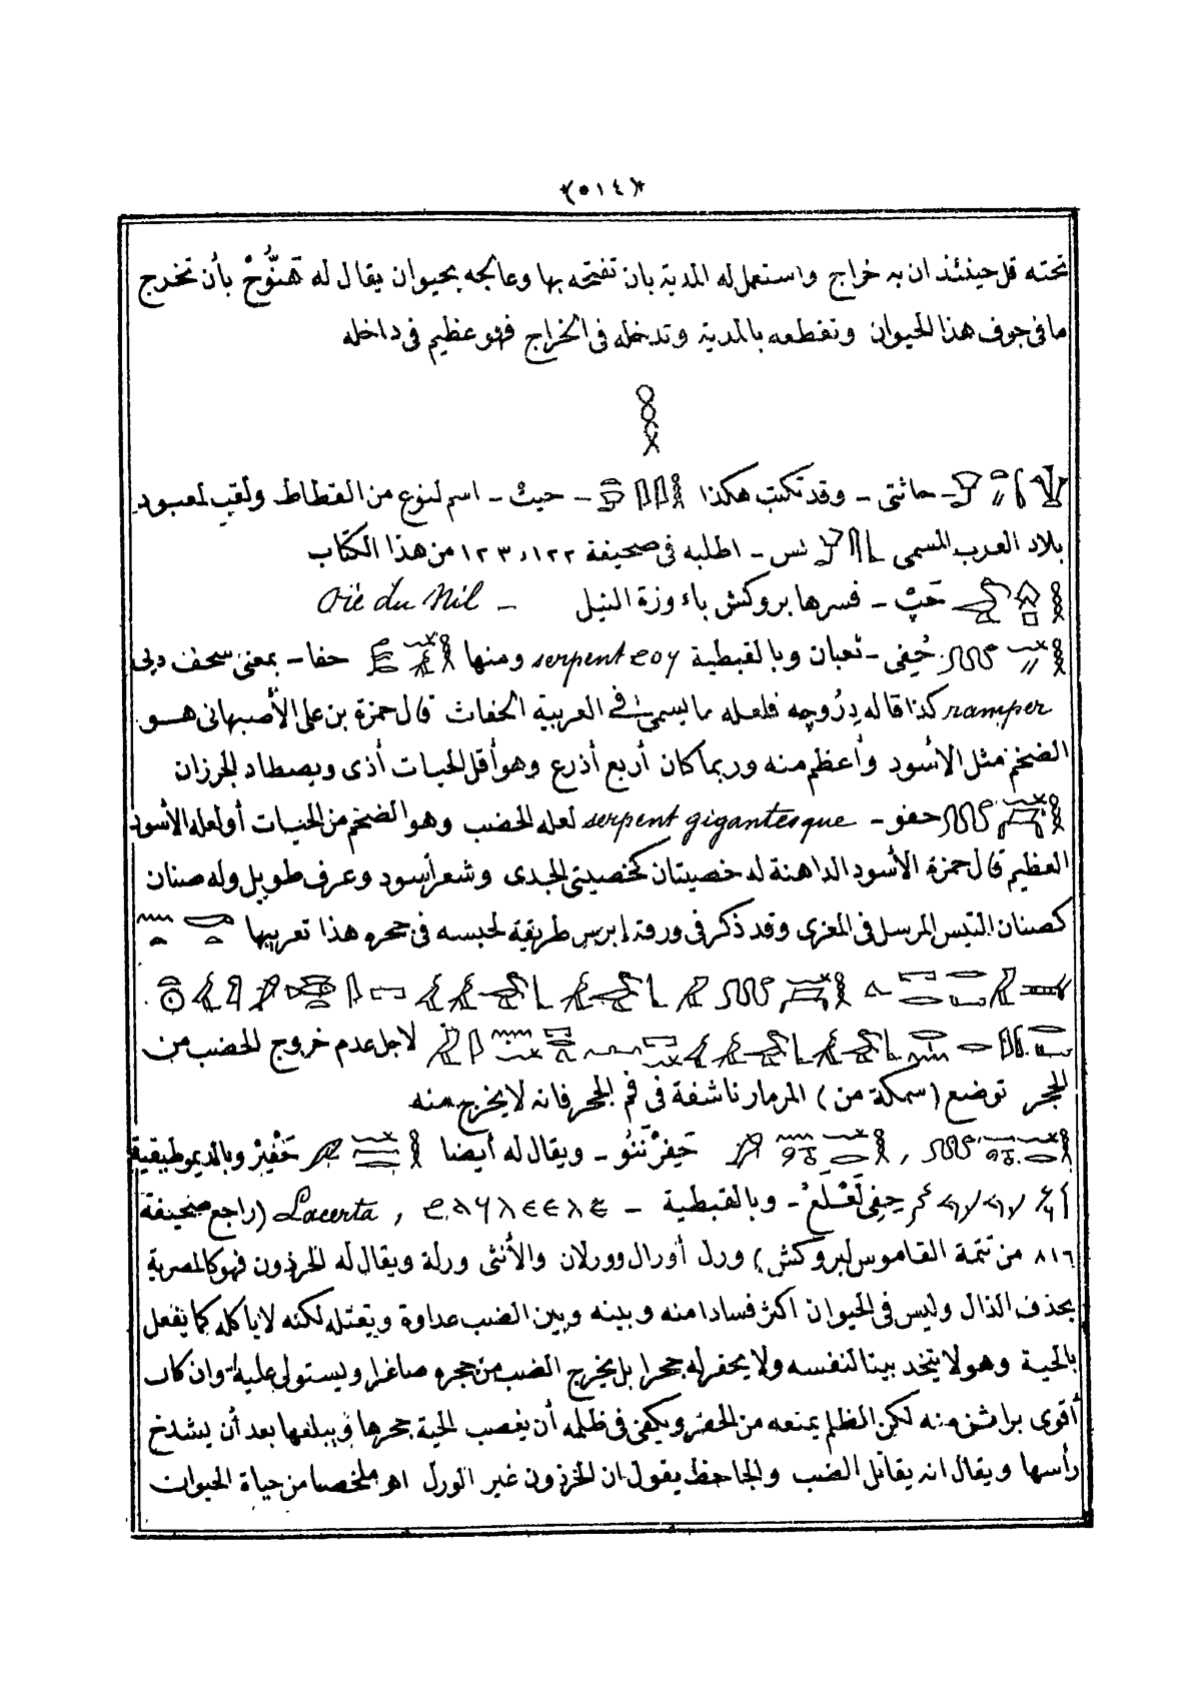 ﴿٥١٤﴾
تحته قل حينئذ ان به خراج واستعمل له المدية بان تفتحه بها وعالجه بحيوان يقال له هنُّوحْ بأن تخرج
ما فى جوف هذا الحيوان وتقطعه بالمدية وتدخله فى الخراج فهو عظيم فى داخله
حاثتى - وقد تكتب هكذا - حيثْ - اسم لنوع من القطاط ولقب لمعبود
بلاد العرب المسمى بس - اطلبه فى صحيفة ١٢٢ و ١٢٣ من هذا الكتاب
حَپْ - فسرها بروكش باءوزة النيل - Oie du Nil
حُفِى - ثعبان وبالقبطية ϩоϥ serpent ومنها حفا - بمعنى سحف دبى
ramper كذا قاله دِرُوجه فلعله ما يسمى فى العربية الحفاث قال حمزة بن على الأصبهانى هو
الضخم مثل الأسود وأعظم منه وربما كان أربع أذرع وهو أقل الحيات أذى ويصطاد الجرزان
حفو - serpent gigantesque لعله الحضب وهو الضخم من الحيات أو لعله الأسود
العظيم قال حمزة الأسود الداهنة له خصيتان كخصيتى الجدى وشعر أسود وعرف طويل وله صنان
كصنان التيس المرسل فى المعزى وقد ذكر فى ورقة إبرس طريقة لحبسه فى جحره هذا تعريبها
لاجل عدم خروج الحضب من
الجحر توضع (سمكة من) المرمار ناشفة فى فم الجحر فانه لا يخرج منه
حَيفرْنَنُو - ويقال له أيضا حَفْيِرْ وبالديموطيقية
حِفِى لَعْلَعْ - وبالقبطية - Lacerta , (راجع صحيفة
٨١٦ من تتمة القاموس لبروكش) ورل أورال وورلان والأنثى ورلة ويقال له الحرذون فهو كالمصرية
بحذف الذال وليس فى الحيوان اكثر فسادا منه وبينه وبين الضب عداوة ويقتله لكنه لا يأكله كما يفعل
بالحية وهو لا يتخد بيتا لنفسه ولا يحفر له جحرا بل يخرج الضب من جحره صاغرا ويستولى عليه وان كان
أقوى براشن منه لكن الظلم يمنعه من الحفر ويكفى فى ظلمه أن يغصب الحية جحرها ويبلعها بعد أن يشدخ
رأسها ويقال انه يقاتل الضب والجاحظ يقول ان الحرذون غير الورل اهـ ملخصا من حياة الحيوان